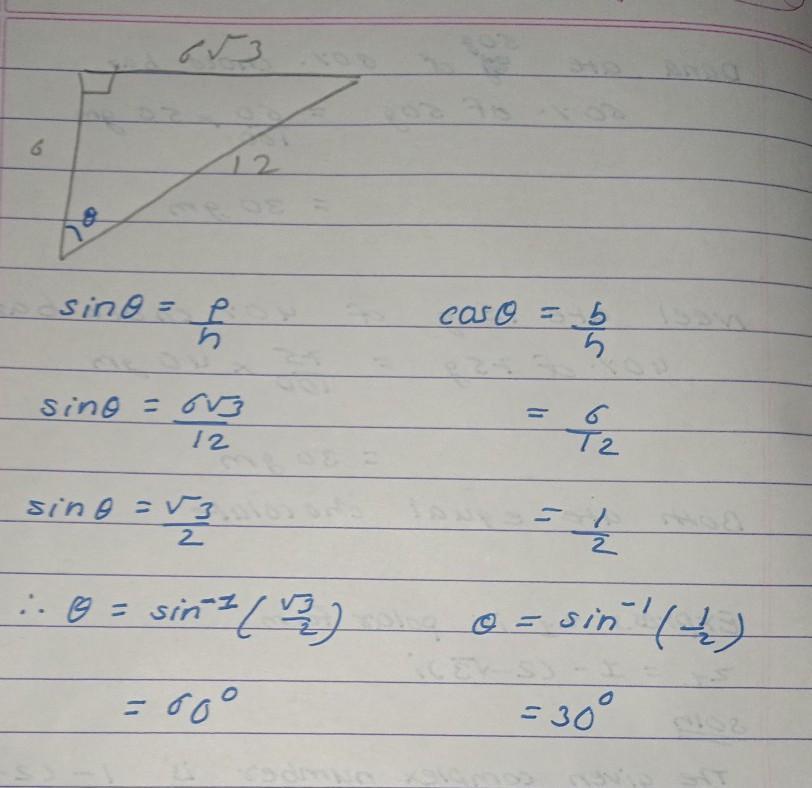 6√3
6
12
θ
sinθ = p/h
cosθ = b/h
sinθ = 6√3/12
= 6/12
sinθ = √3/2
= 1/2
∴ θ = sin⁻¹(√3/2)
θ = sin⁻¹(1/2)
= 60°
= 30°